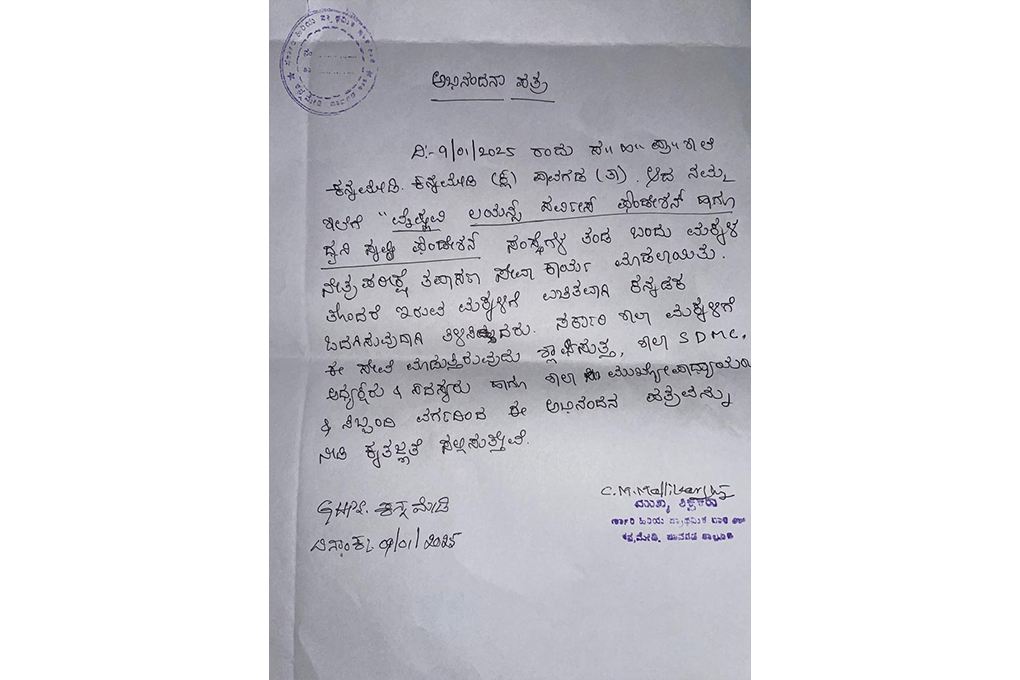 ಅಭಿನಂದನಾ ಪತ್ರ
ದಿ:- 9/01/2025 ರಂದು ಸ" ಹಿ" ಪ್ರಾ" ಶಾಲೆ
ಕನ್ನಮೇಡಿ. ಕನ್ನಮೇಡಿ (ಕ್ಲ) ಪಾವಗಡ (ತಾ). ಆದ ನಮ್ಮ
ಶಾಲೆಗೆ "ವೈಷ್ಣವಿ ಲಯನ್ಸ್ ಸರ್ವೀಸ್ ಫೌಂಡೇಶನ್ ಹಾಗೂ
ದ್ವನಿ ಸೃಷ್ಠಿ ಫೌಂಡೇಶನ್ ಸಂಸ್ಥೆಗಳ ತಂಡ ಬಂದು ಮಕ್ಕಳ
ನೇತ್ರ ಪರೀಕ್ಷೆ ತಪಾಸಣಾ ಸೇವಾ ಕಾರ್ಯ ಮಾಡಲಾಯಿತು.
ತೊಂದರೆ ಇರುವ ಮಕ್ಕಳಿಗೆ ಉಚಿತವಾಗಿ ಕನ್ನಡಕ
ಒದಗಿಸುವುದಾಗಿ ತಿಳಿಸಿದ್ದಾರೆ. ಸರ್ಕಾರಿ ಶಾಲಾ ಮಕ್ಕಳಿಗೆ
ಈ ಸೇವೆ ಮಾಡುತ್ತಿರುವುದು ಶ್ಲಾಘಿಸುತ್ತ, ಶಾಲಾ SDMC.
ಅಧ್ಯಕ್ಷರು & ಸದಸ್ಯರು ಹಾಗೂ ಶಾಲಾ ಮುಖ್ಯೋಪಾಧ್ಯಾಯರು
& ಸಿಬ್ಬಂದಿ ವರ್ಗದಿಂದ ಈ ಅಭಿನಂದನ ಪತ್ರವನ್ನು
ನೀಡಿ ಕೃತಜ್ಞತೆ ಸಲ್ಲಿಸುತ್ತೇವೆ.
GHPS. ಕನ್ನಮೇಡಿ
ದಿನಾಂಕ: 09/01/2025
C.M.Mallikarj
ಮುಖ್ಯ ಶಿಕ್ಷಕರು
ಸರ್ಕಾರಿ ಹಿರಿಯ ಪ್ರಾಥಮಿಕ ಶಾಲೆ
ಕನ್ನಮೇಡಿ, ಪಾವಗಡ ತಾಲ್ಲೂಕು